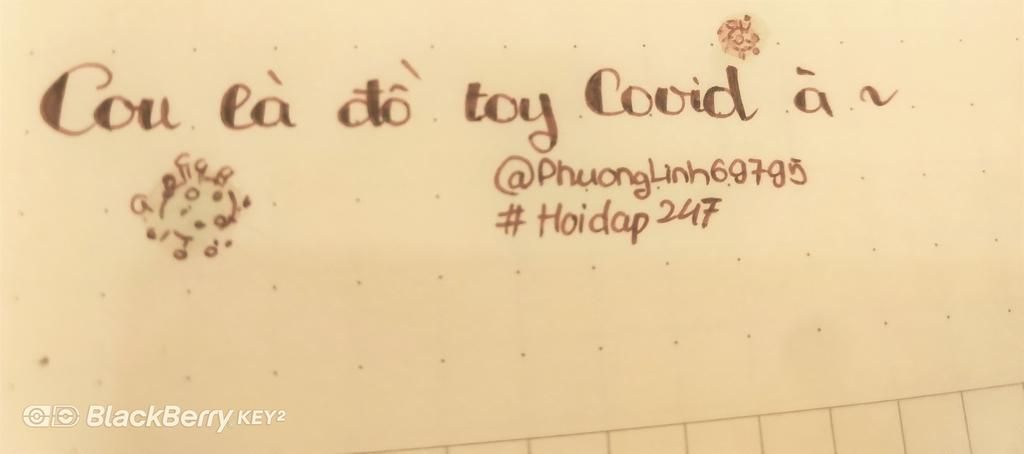 Cou là đồ toy Covid à ~
@PhuongLinh69795
# Hoidap 247
BlackBerry KEY²